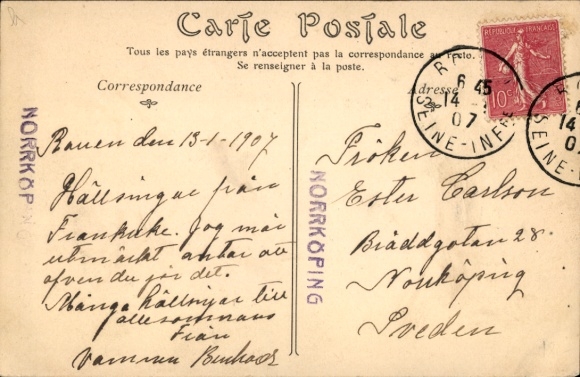 Carte Postale
Tous les pays étrangers n'acceptent pas la correspondance au recto.
Se renseigner à la poste.
Correspondance
Adresse
RÉPUBLIQUE FRANÇAISE
10c
6 45
14
07
SEINE-INFRE
NORRKÖPING
NORRKÖPING
Rouen den 13-1-1907
Hällsingar från
Frankrike. Jag mår
utmärkt antar att
äfven du gör det.
Många hällsingar till
allesammans
Från
Vännen
Fröken
Ester Carlson
Bräddgatan 28.
Norrköping
Sveden